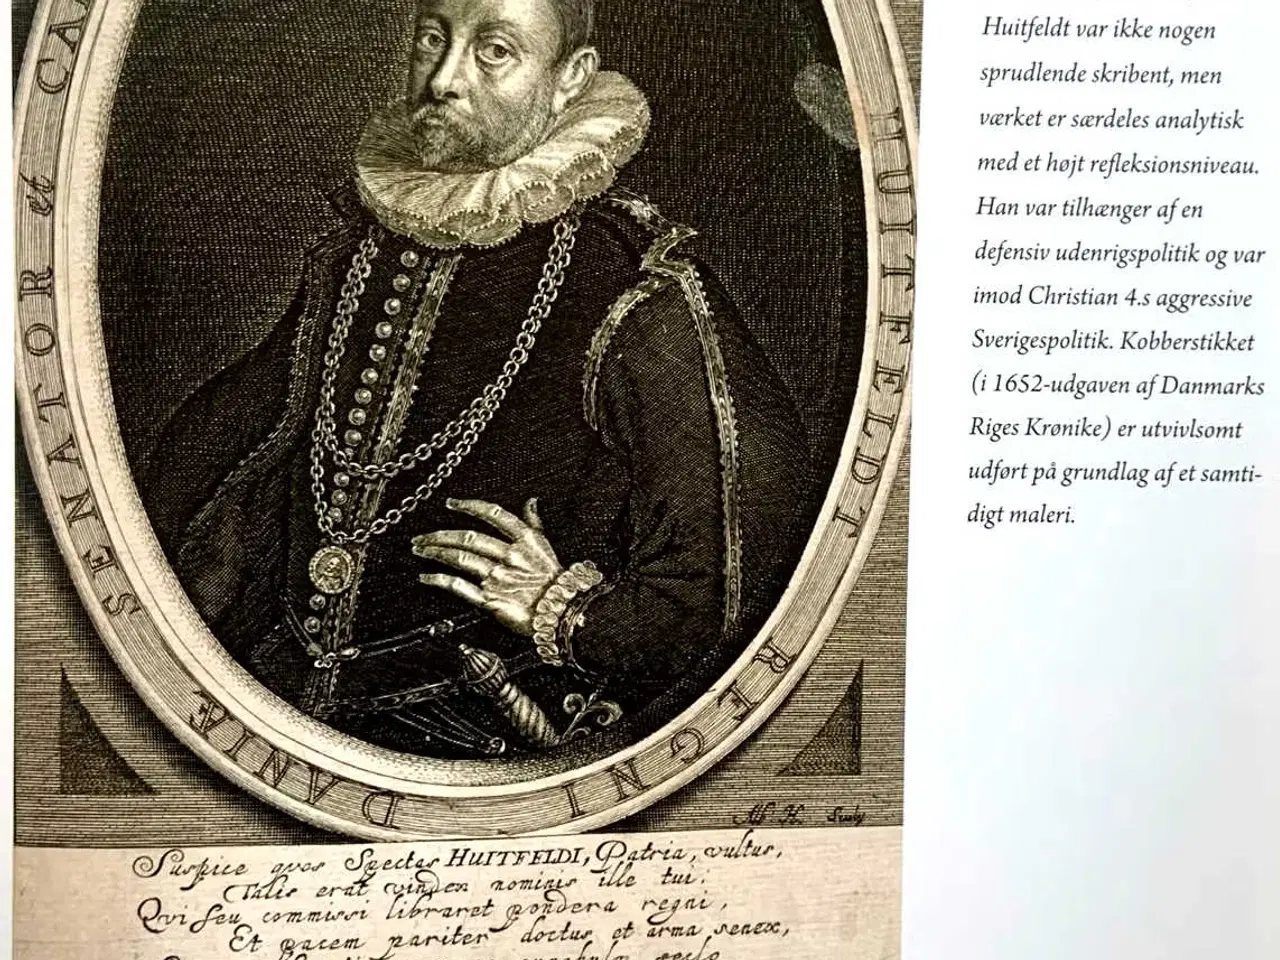 HUITFELDT REGNI DANIÆ SENATOR et CA
Alb H. Sculp
Suspice qvos Spectas HUITFELDI, Patria, vultus,
Talis erat vindex nominis ille tui:
Qvi seu commissi libraret pondera regni,
Et pacem pariter doctus et arma senex,
Huitfeldt var ikke nogen
sprudlende skribent, men
værket er særdeles analytisk
med et højt refleksionsniveau.
Han var tilhænger af en
defensiv udenrigspolitik og var
imod Christian 4.s aggressive
Sverigespolitik. Kobberstikket
(i 1652-udgaven af Danmarks
Riges Krønike) er utvivlsomt
udført på grundlag af et samti-
digt maleri.